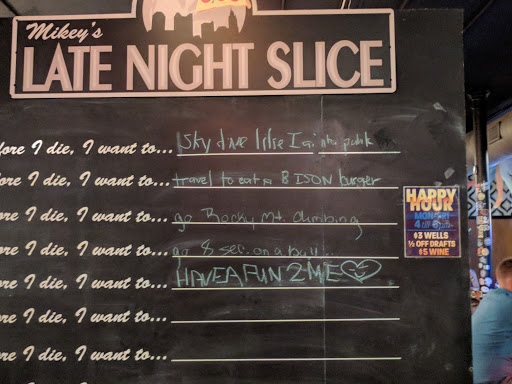 Mikey's
LATE NIGHT SLICE
fore I die, I want to... Sky dive like I
ore I die, I want to... travel to eat a BISON burger
ore I die, I want to... go Rocky Mt. climbing
re I die, I want to... go 8 sec. on a bull..
re I die, I want to... HAVE A FUN 2 ME
re I die, I want to...
re I die, I want to...
HAPPY
HOUR
4
$3 WELLS
½ OFF DRAFTS
$5 WINE